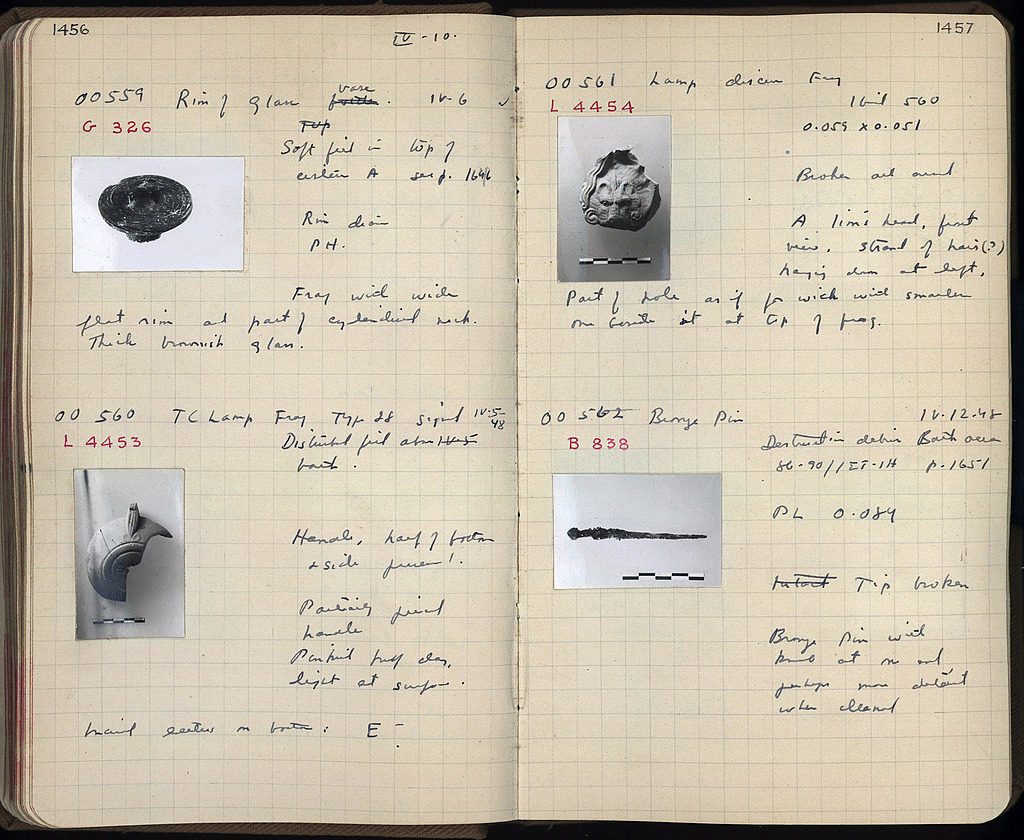 1456
IV-10.
OO 559 Rim of glass vase. IV-6
G 326
Soft fill in top of
cistern A see p. 1646
Rim diam
PH.
Frag with wide
flat rim and part of cylindrical neck.
Thick brownish glass.
OO 560 TC Lamp Frag Type 28 signed IV-5-48
L 4453
Disturbed fill above
bath.
Handle, half of bottom
& side preserv.
Partially pierced
handle
Pinkish buff clay,
light at surface.
Incised letters on bottom: E
1457
OO 561 Lamp discus Frag
L 4454
With 560
0.059 x 0.051
Broken all around
A lion's head, front
view, strand of hair(?)
hanging down at left.
Part of hole as if for wick with smaller
one beside it at top of frag.
OO 562 Bronze Pin IV-12-48
B 838
Destruction debris Bath area
86-90/ΙΣΤ-ΙΗ p. 1651
PL 0.084
Intact Tip broken
Bronze Pin with
knob at one end
perhaps more detail
when cleaned